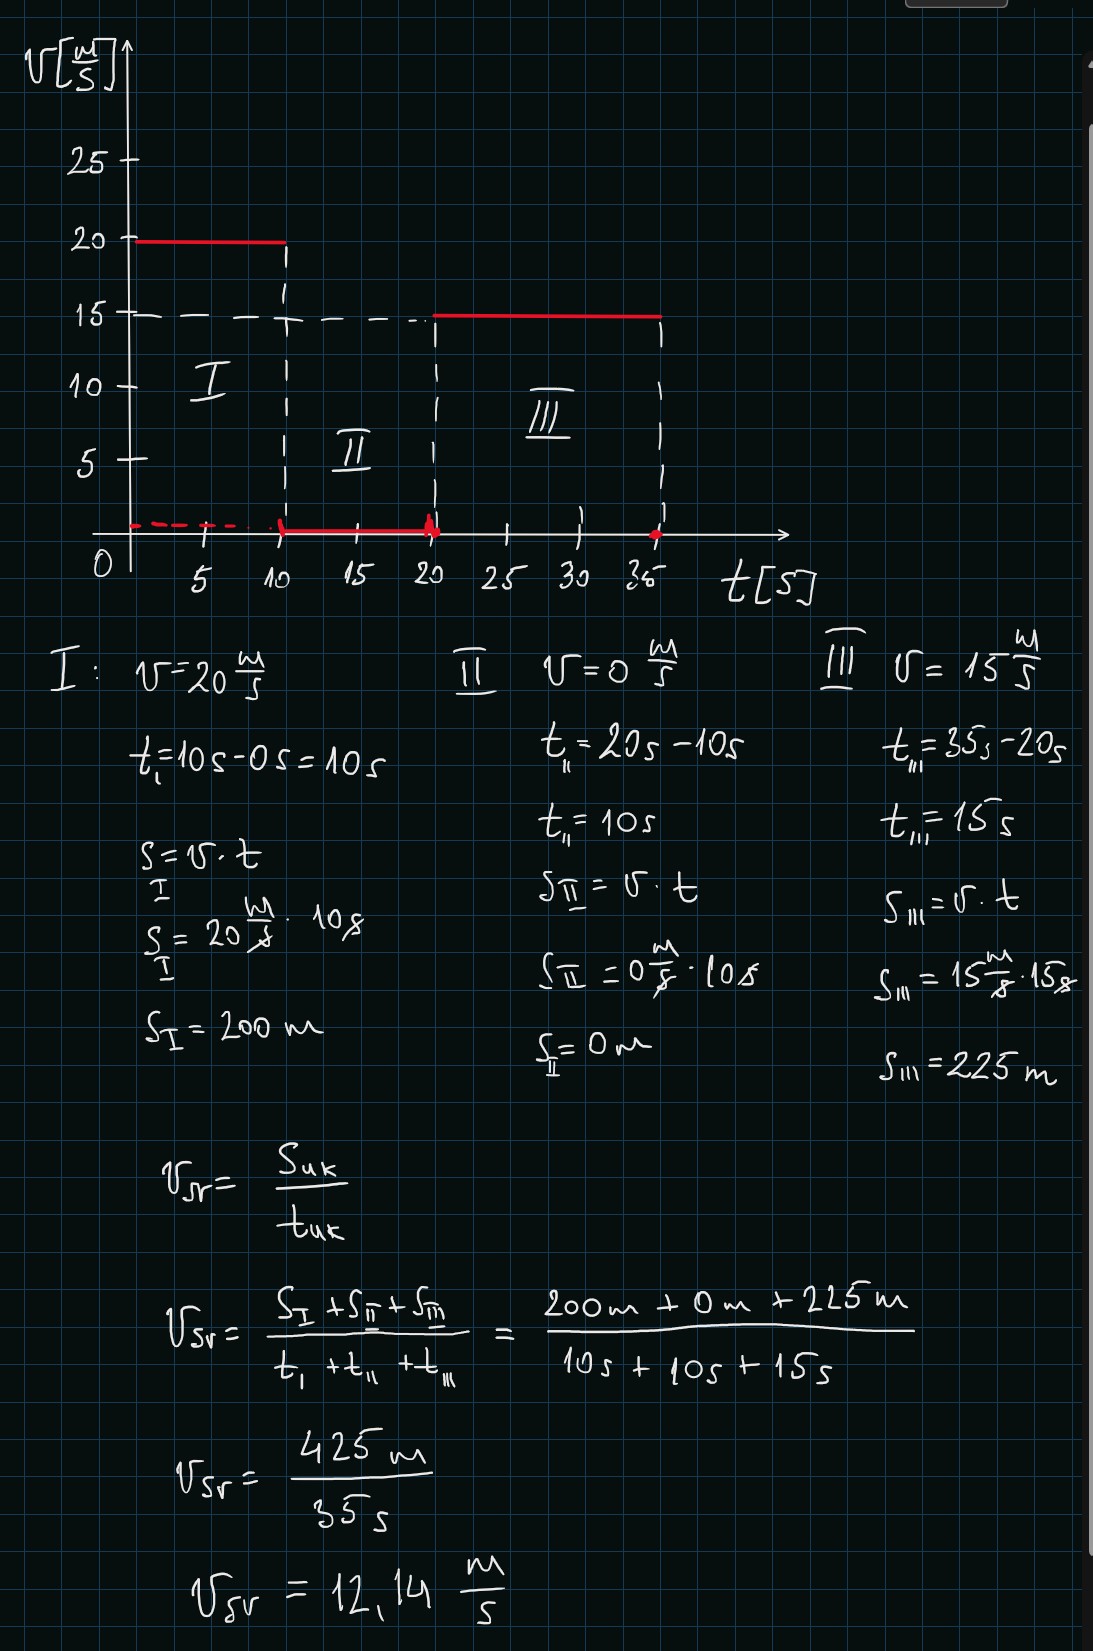 v[m/s]
25
20
15
10
5
I
II
III
0 5 10 15 20 25 30 35 t[s]
I: v=20 m/s
t₁=10s-0s=10s
S_I=v·t
S_I=20 m/s · 10s
S_I=200 m
II v=0 m/s
t_II=20s-10s
t_II=10s
S_II=v·t
S_II=0 m/s · 10s
S_II=0m
III v=15 m/s
t_III=35s-20s
t_III=15s
S_III=v·t
S_III=15 m/s · 15s
S_III=225m
v_sr= S_uk/t_uk
v_sr= (S_I+S_II+S_III)/(t_I+t_II+t_III) = (200m+0m+225m)/(10s+10s+15s)
v_sr= 425m/35s
v_sr=12,14 m/s